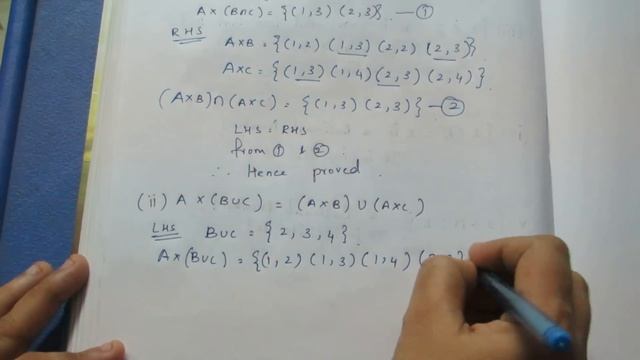 A×(B∩C) = {(1,3) (2,3)} —①
RHS A×B = {(1,2) (1,3) (2,2) (2,3)}
A×C = {(1,3) (1,4) (2,3) (2,4)}
(A×B)∩(A×C) = {(1,3) (2,3)} —②
LHS = RHS
from ① & ②
∴ Hence proved.
(ii) A × (B∪C) = (A×B) ∪ (A×C)
LHS B∪C = {2, 3, 4}
A×(B∪C) = {(1,2) (1,3) (1,4)